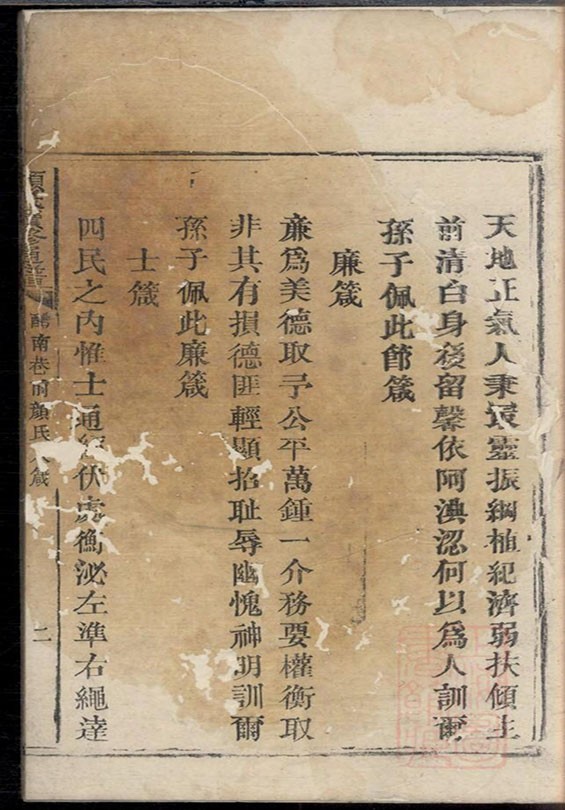 天地正氣人秉最靈振綱植紀濟弱扶傾生
前清白身後留馨依阿淟涊何以爲人訓爾
孫子佩此節箴
廉箴
亷爲美德取予公平萬鍾一介務要權衡取
非其有損德匪輕顯招耻辱幽愧神明訓爾
孫子佩此廉箴
士箴
四民之内惟士通經伏處衡泌左準右繩達
通譜
南巷前顔氏 箴
二